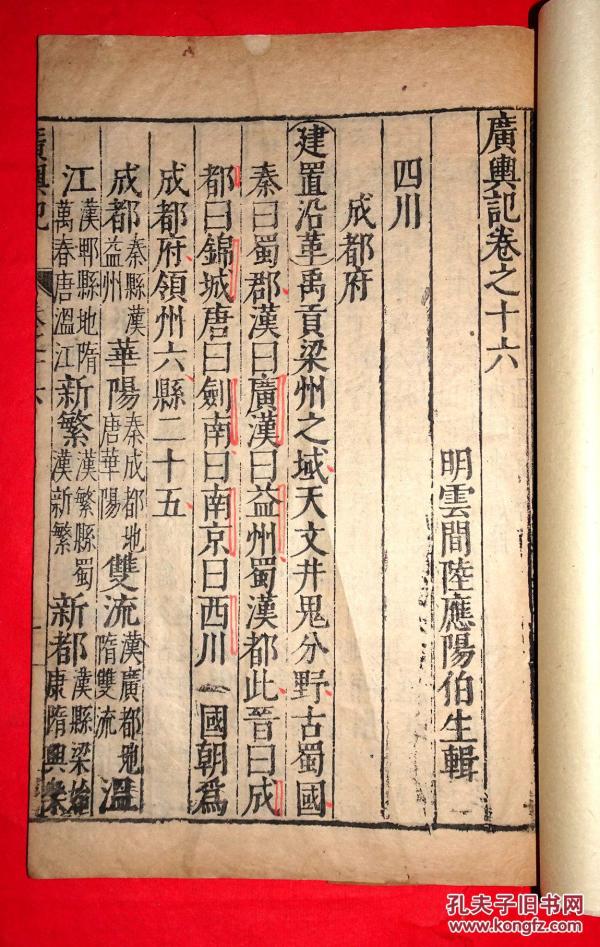 廣輿記卷之十六
明雲間陸應陽伯生輯
四川
成都府
建置沿革禹貢梁州之域天文井鬼分野古蜀國
秦曰蜀郡漢曰廣漢曰益州蜀漢都此晉曰成
都曰錦城唐曰劍南曰南京曰西川 國朝爲
成都府領州六縣二十五
成都秦縣漢益州 華陽秦成都地唐華陽 雙流漢廣都地隋雙流 溫
江漢郫縣地隋萬春唐溫江 新繁漢繁縣蜀漢新繁 新都漢縣梁始康隋興樂
廣輿記
孔夫子旧书网
www.kongfz.com